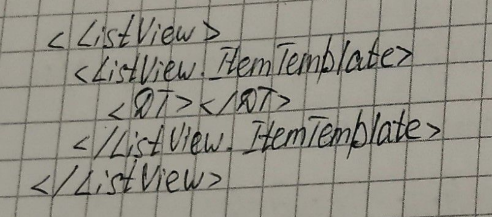 <ListView>
<ListView.ItemTemplate>
<DT></DT>
</ListView.ItemTemplate>
</ListView>